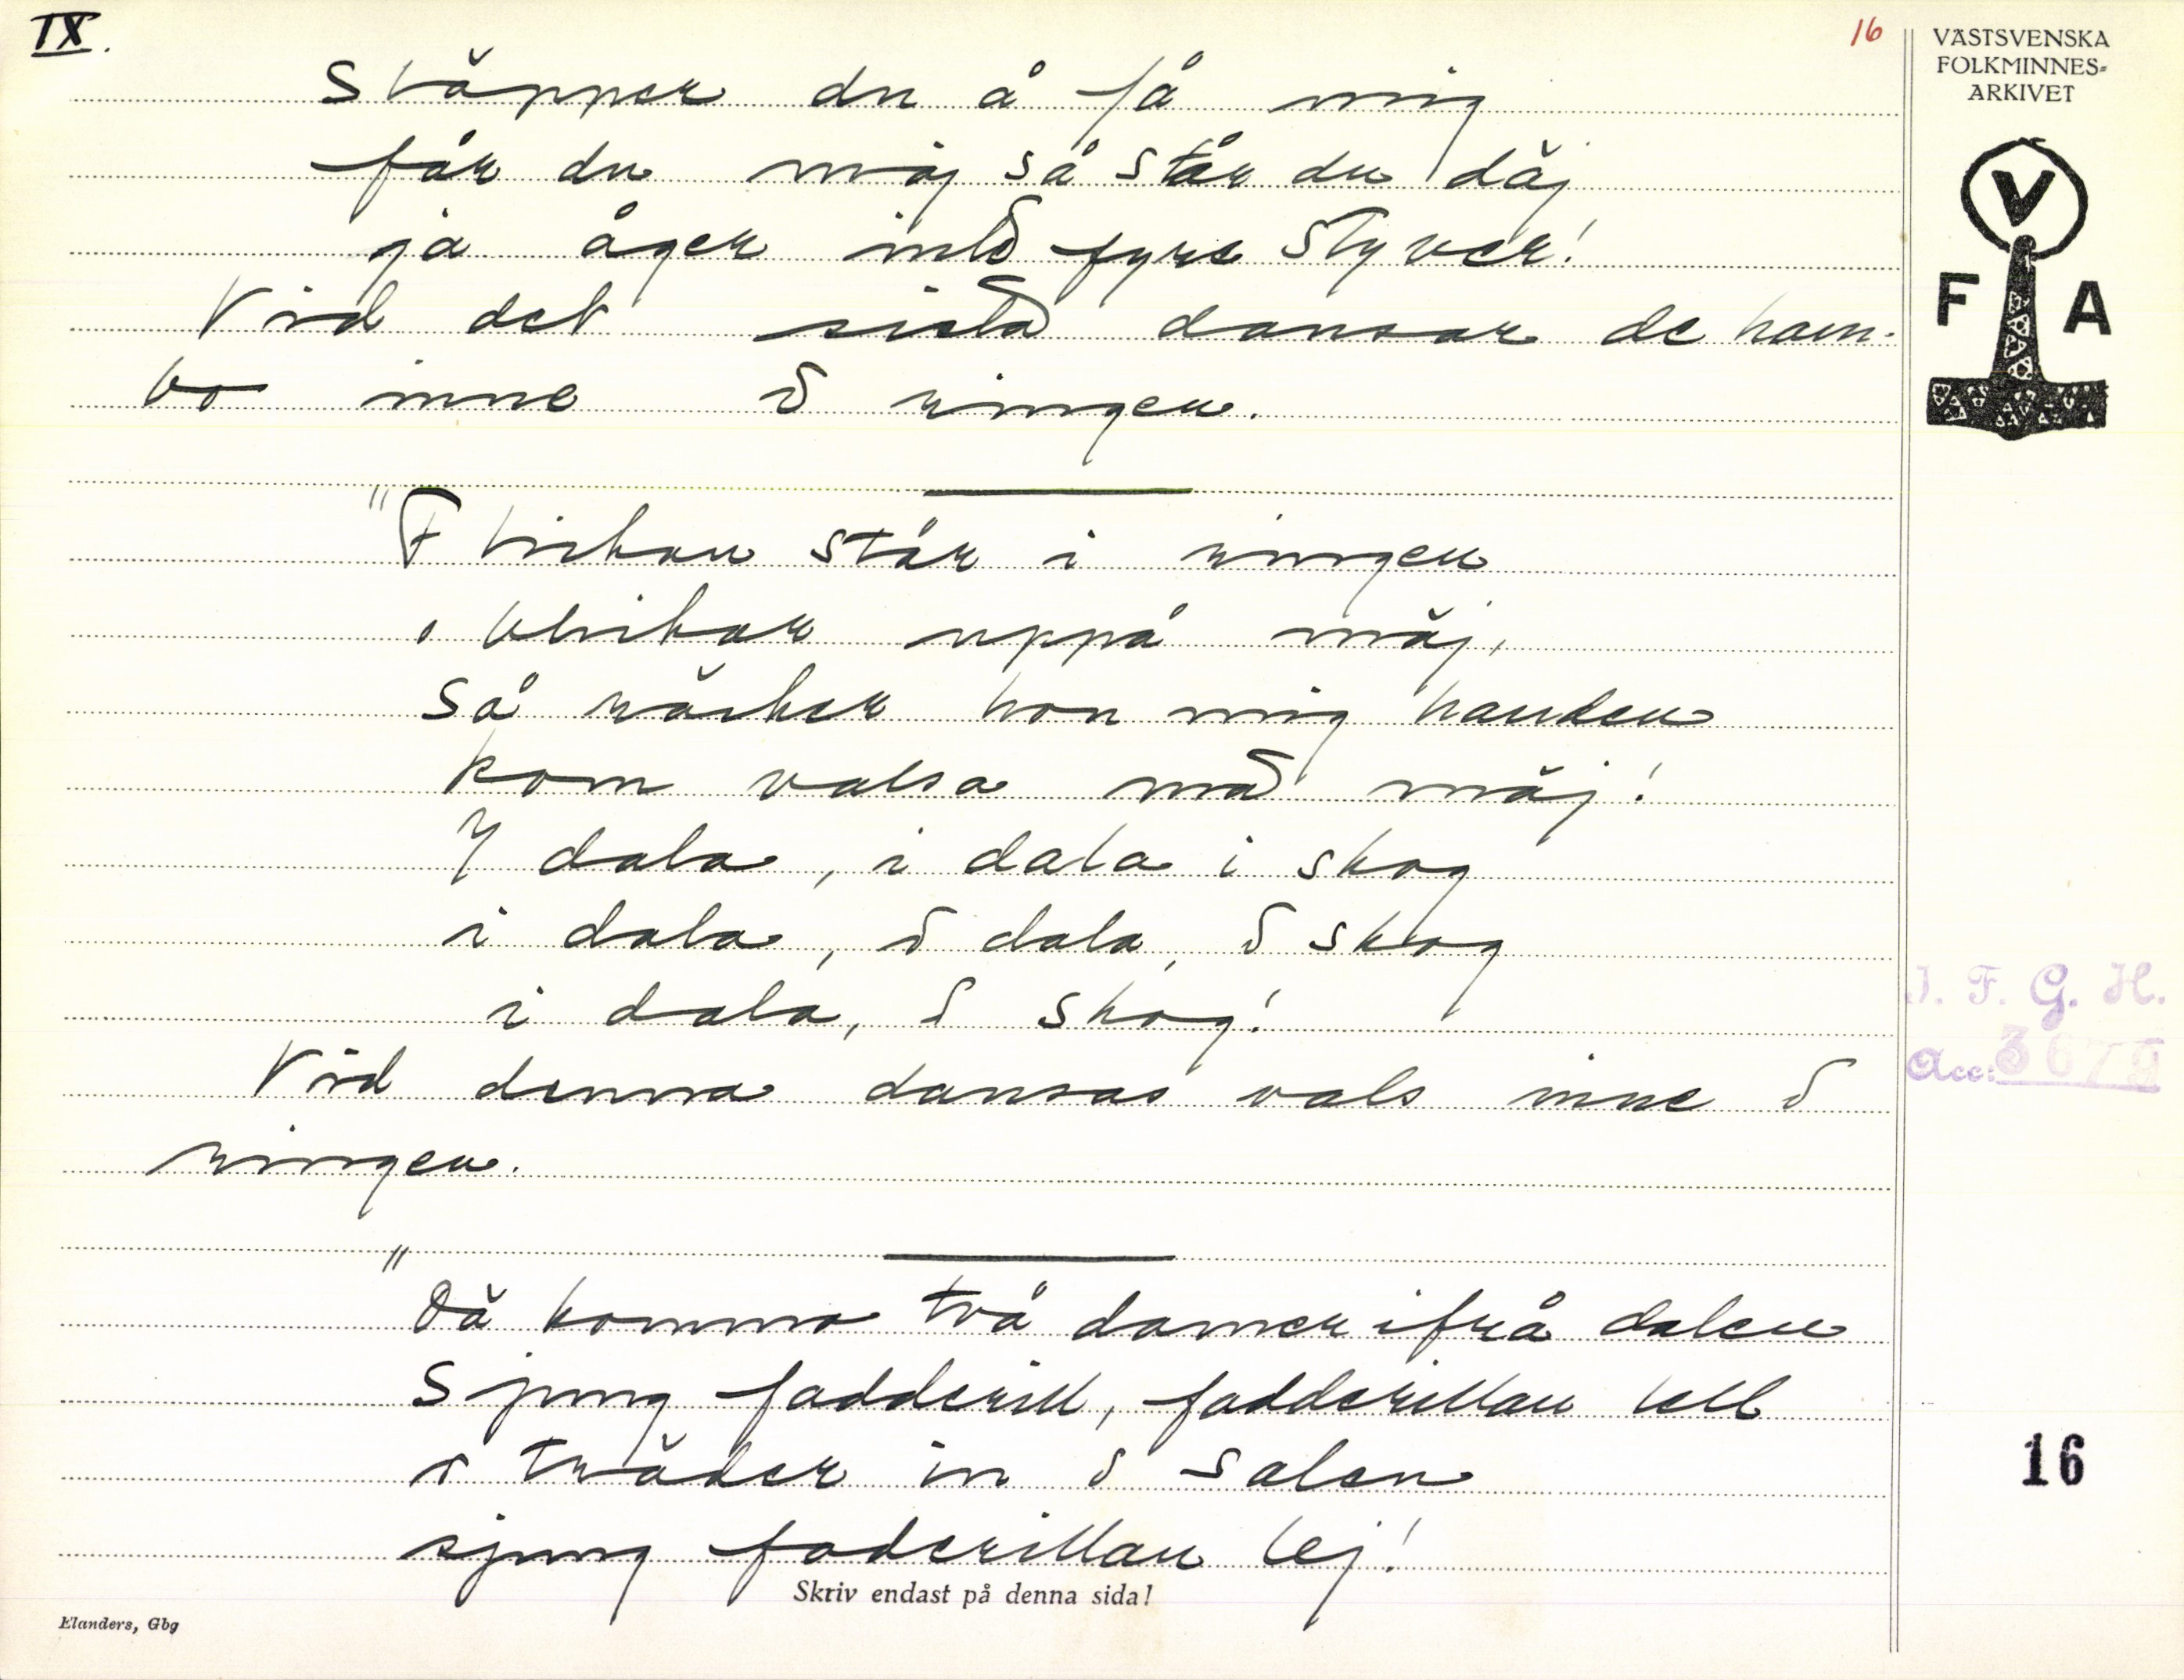 IX.
16
VÄSTSVENSKA
FOLKMINNES-
ARKIVET
V
F A
Släpper du å få mig
får du mäj så står du däj
ja äger inte fyra styver!
Vid det sista dansar de ham-
bo inne i ringen.
"Flickan står i ringen
o blickar uppå mäj,
så räcker hon mig handen
kom valsa mä mäj!
I dala, i dala i skog
i dala, i dala, i skog
i dala, i skog!
Vid denna dansas vals inne i
ringen.
"Då komma två damer ifrå dalen
Sjung fadderill, fadderillan lell
o träder in i salen
sjung faderillan lej!
J. F. G. H.
Acc: 3679
16
Skriv endast på denna sida!
Elanders, Gbg